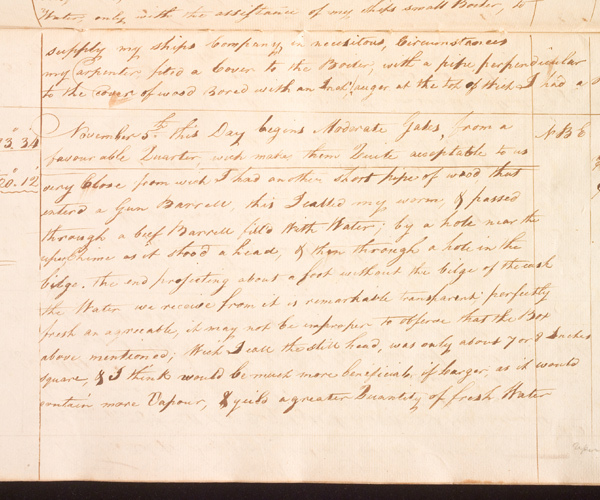 Water, only with the assistance of my ships small Boiler, to
supply my ships Company, in necesitous, Circumstances
my Carpenter fited a Cover to the Boiler, with a pipe perpendicular
to the cover of wood Bored with an Inch auger at the top of Wich I had a
November 5th this Day begins Moderate Gales, from a
N B E
favourable Quarter, wich makes them Quite acceptable to us
very Close from wich I had another short pipe of wood that
enterd a Gun Barrell, this I called my worm, & passed
through a beef Barrell filld With Water; by a hole near the
chime as it stood a head, & then through a hole in the
bilge. the end projecting about a foot without the bilge of the cask
the Water we receive from it is remarkable transparent, perfectly
fresh an agreeable, it may not be improper to observe that the Box
above mentioned; Wich I call the still head, was only about 7 or 8 Inches
square, & I think would be much more beneficial if larger, as it would
contain more Vapour, & yeild a greater Quantity of fresh Water